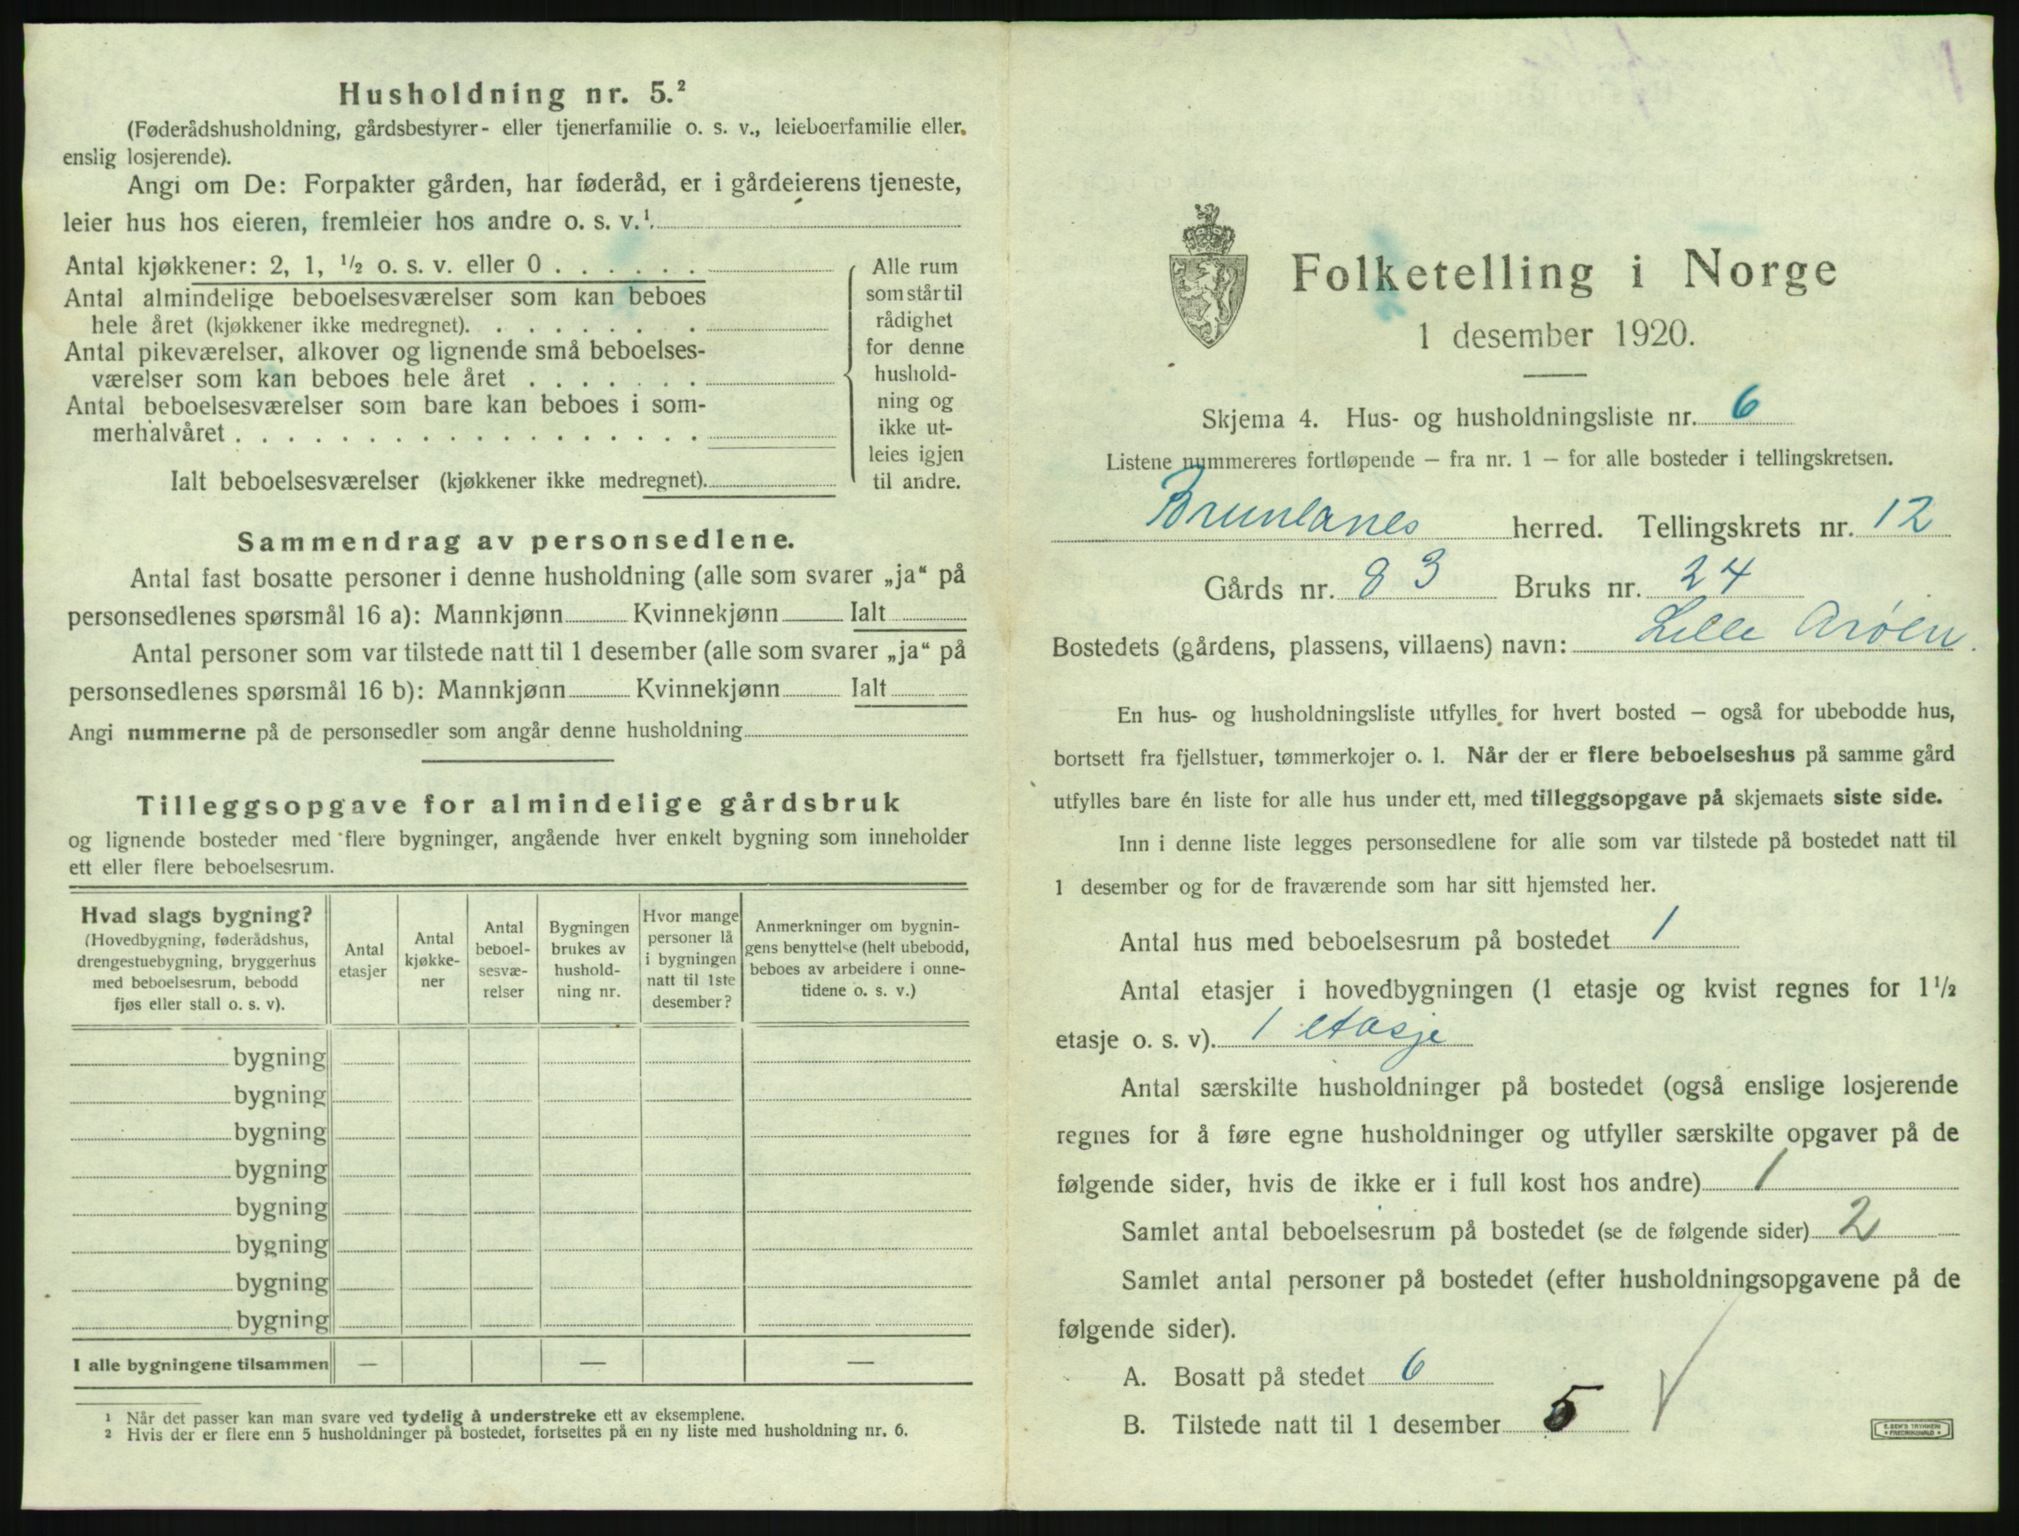 Husholdning nr. 5.²
(Føderådshusholdning, gårdsbestyrer- eller tjenerfamilie o. s. v., leieboerfamilie eller
enslig losjerende).
Angi om De: Forpakter gården, har føderåd, er i gårdeierens tjeneste,
leier hus hos eieren, fremleier hos andre o. s. v.¹.
Antal kjøkkener: 2, 1, ½ o. s. v. eller 0 . . . . . .
Antal almindelige beboelsesværelser som kan beboes
hele året (kjøkkener ikke medregnet). . . . . . . . .
Antal pikeværelser, alkover og lignende små beboelses-
værelser som kan beboes hele året . . . . . . .
Antal beboelsesværelser som bare kan beboes i som-
merhalvåret . . . . . . . . . . . . . . . . . .
Ialt beboelsesværelser (kjøkkener ikke medregnet).
Alle rum
som står til
rådighet
for denne
hushold-
ning og
ikke ut-
leies igjen
til andre.
Sammendrag av personsedlene.
Antal fast bosatte personer i denne husholdning (alle som svarer „ja“ på
personsedlenes spørsmål 16 a): Mannkjønn Kvinnekjønn Ialt
Antal personer som var tilstede natt til 1 desember (alle som svarer „ja“ på
personsedlenes spørsmål 16 b): Mannkjønn Kvinnekjønn Ialt
Angi nummerne på de personsedler som angår denne husholdning
Tilleggsopgave for almindelige gårdsbruk
og lignende bosteder med flere bygninger, angående hver enkelt bygning som inneholder
ett eller flere beboelsesrum.
Hvad slags bygning?
(Hovedbygning, føderådshus,
drengestuebygning, bryggerhus
med beboelsesrum, bebodd
fjøs eller stall o. s. v).
Antal
etasjer
Antal
kjøkke-
ner
Antal
beboel-
sesvæ-
relser
Bygningen
brukes av
hushold-
ning nr.
Hvor mange
personer lå
i bygningen
natt til 1ste
desember?
Anmerkninger om bygnin-
gens benyttelse (helt ubebodd,
beboes av arbeidere i onne-
tidene o. s. v.)
bygning
bygning
bygning
bygning
bygning
bygning
bygning
bygning
I alle bygningene tilsammen — — —
¹ Når det passer kan man svare ved tydelig å understreke ett av eksemplene.
² Hvis der er flere enn 5 husholdninger på bostedet, fortsettes på en ny liste med husholdning nr. 6.
Folketelling i Norge
1 desember 1920.
Skjema 4. Hus- og husholdningsliste nr. 6
Listene nummereres fortløpende – fra nr. 1 – for alle bosteder i tellingskretsen.
Brunlanes herred. Tellingskrets nr. 12
Gårds nr. 83 Bruks nr. 24
Bostedets (gårdens, plassens, villaens) navn: Lille Arøen.
En hus- og husholdningsliste utfylles for hvert bosted – også for ubebodde hus,
bortsett fra fjellstuer, tømmerkojer o. l. Når der er flere beboelseshus på samme gård
utfylles bare én liste for alle hus under ett, med tilleggsopgave på skjemaets siste side.
Inn i denne liste legges personsedlene for alle som var tilstede på bostedet natt til
1 desember og for de fraværende som har sitt hjemsted her.
Antal hus med beboelsesrum på bostedet 1
Antal etasjer i hovedbygningen (1 etasje og kvist regnes for 1½
etasje o. s. v). 1 etasje
Antal særskilte husholdninger på bostedet (også enslige losjerende
regnes for å føre egne husholdninger og utfyller særskilte opgaver på de
følgende sider, hvis de ikke er i full kost hos andre) 1
Samlet antal beboelsesrum på bostedet (se de følgende sider) 2
Samlet antal personer på bostedet (efter husholdningsopgavene på de
følgende sider).
A. Bosatt på stedet 6
B. Tilstede natt til 1 desember 5